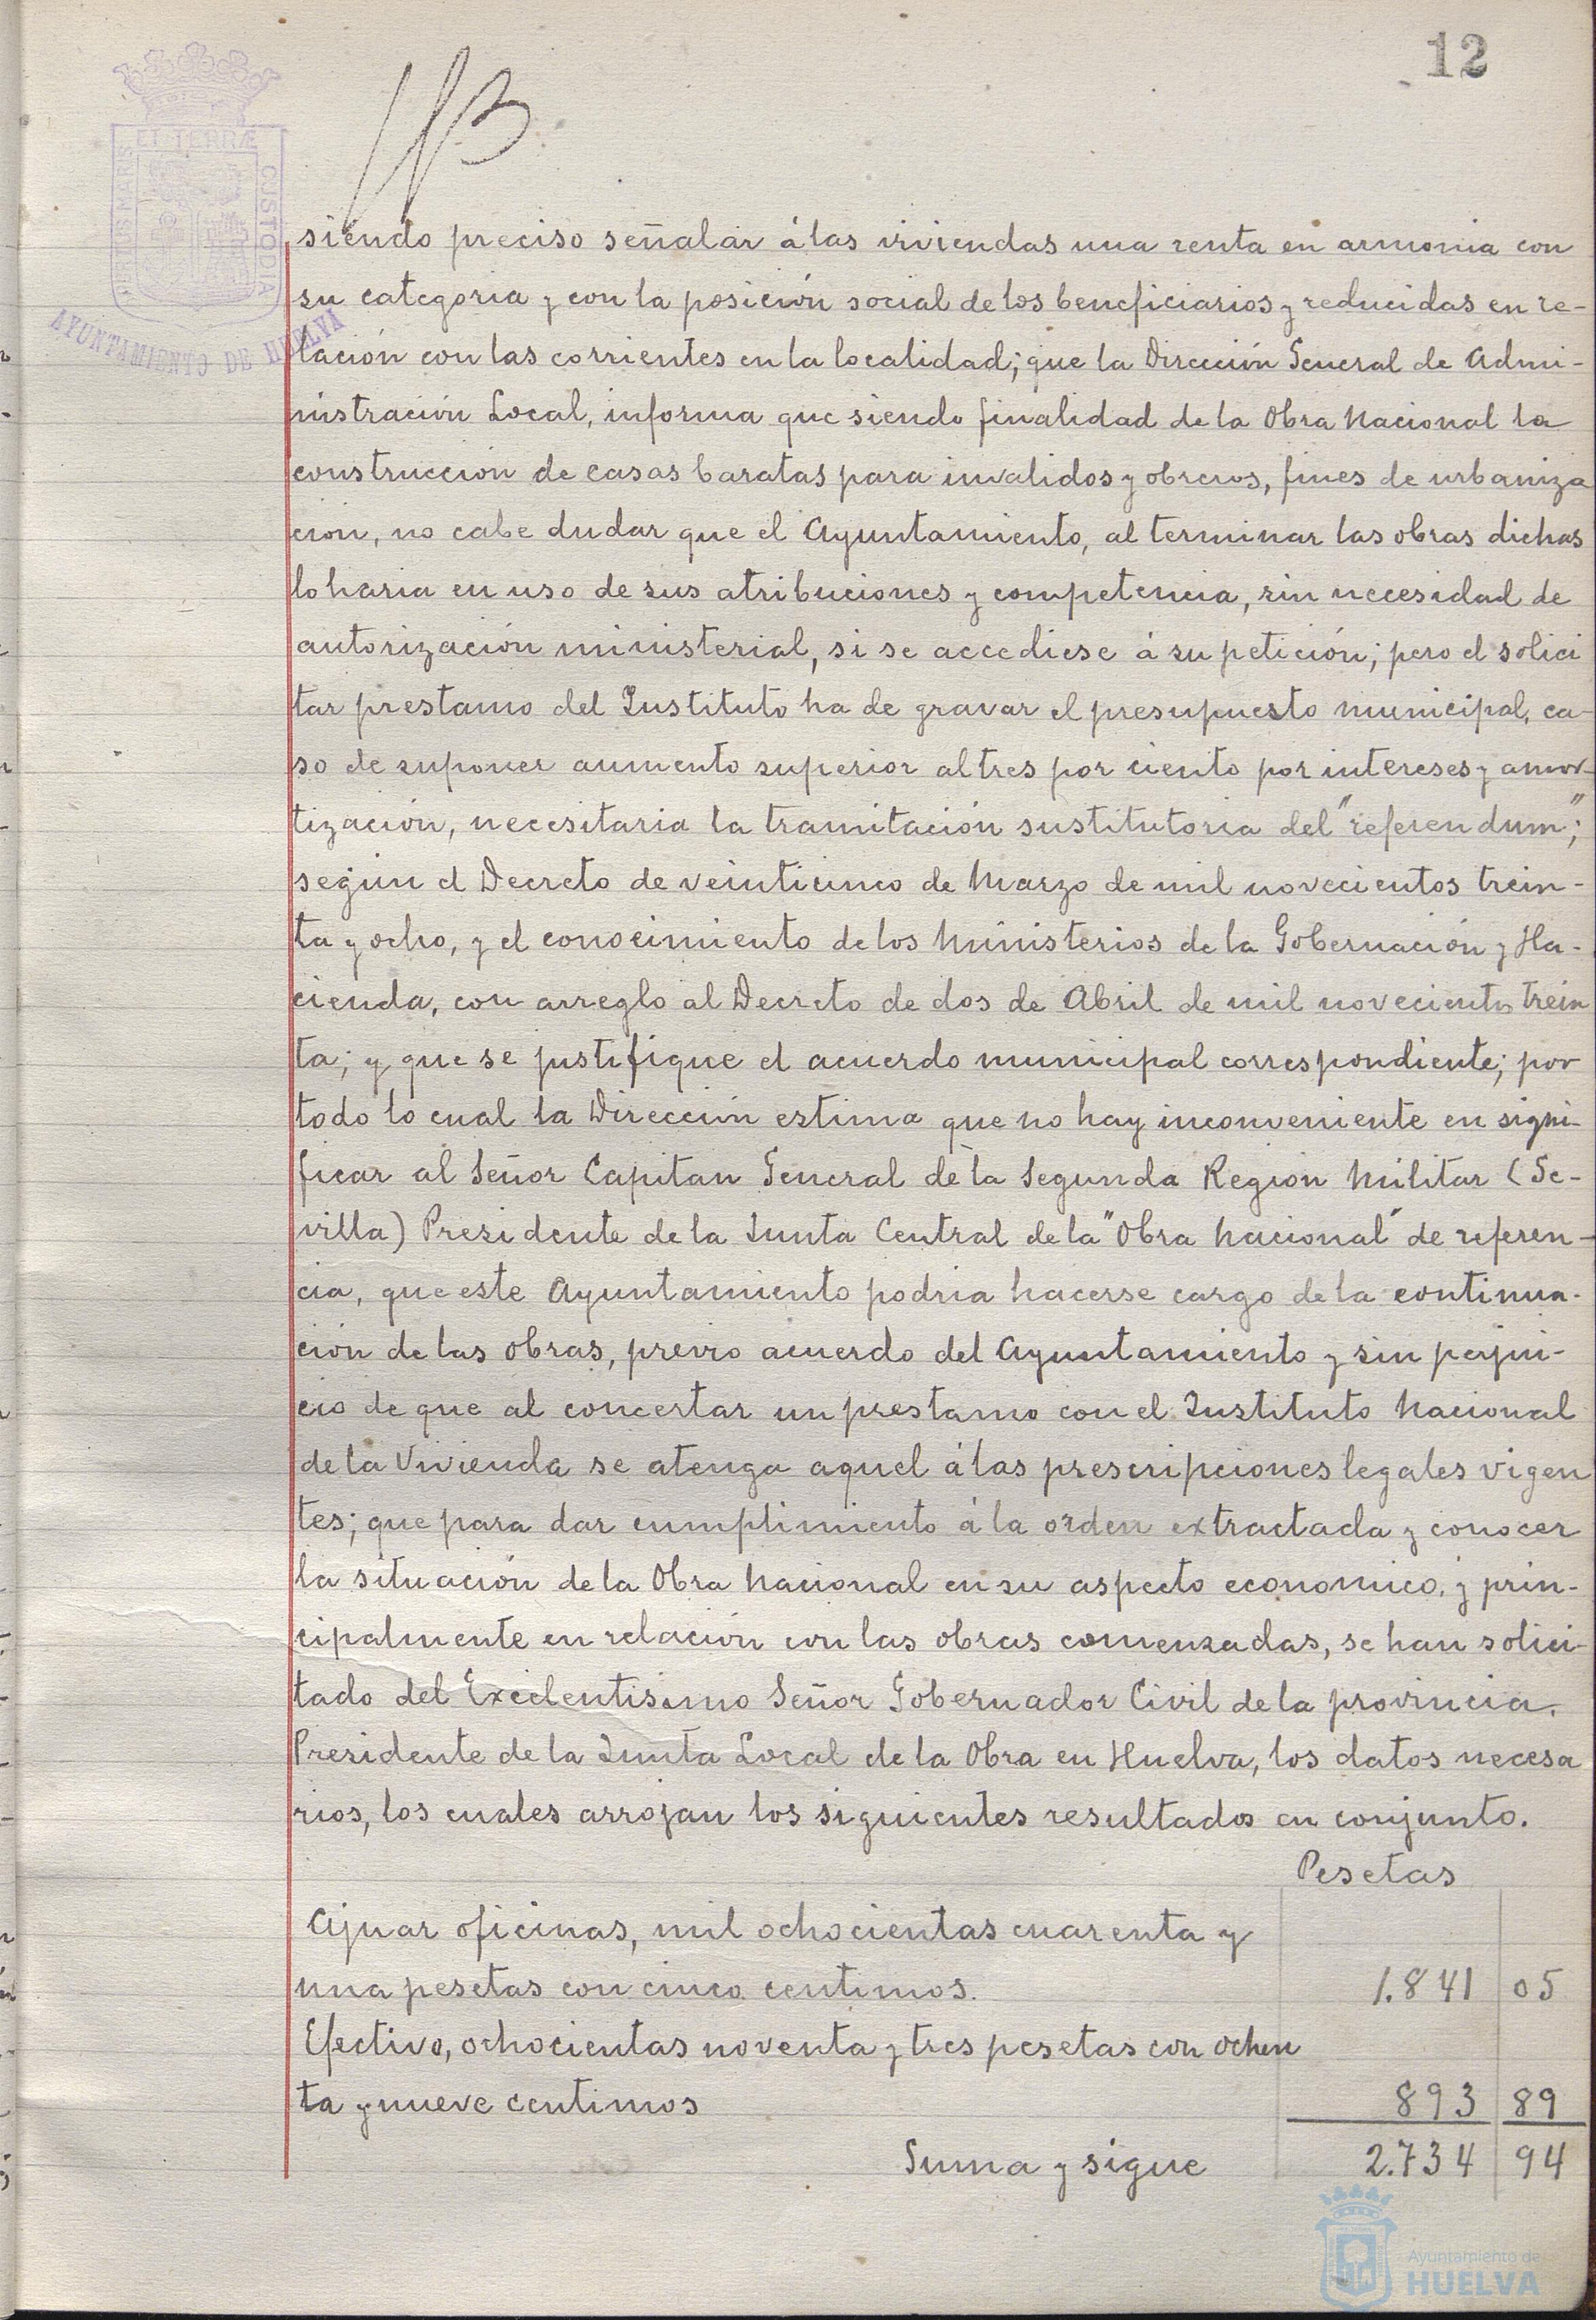 12
PORTUS MARIS
ET TERRÆ
CUSTODIA
AYUNTAMIENTO DE HUELVA
siendo preciso señalar á las viviendas una renta en armonia con
su categoria y con la posición social de los beneficiarios y reducidas en re-
lación con las corrientes en la localidad; que la Dirección General de Admi-
nistración Local, informa que siendo finalidad de la Obra Nacional la
construcción de casas baratas para invalidos y obreros, fines de urbaniza
ción, no cabe dudar que el Ayuntamiento, al terminar las obras dichas
lo haria en uso de sus atribuciones y competencia, sin necesidad de
autorización ministerial, si se accediese á su petición; pero el solici
tar prestamo del Instituto ha de gravar el presupuesto municipal, ca-
so de suponer aumento superior al tres por ciento por intereses y amor-
tización, necesitaria la tramitación sustitutoria del "referendum";
según el Decreto de veinticinco de Marzo de mil novecientos trein-
ta y ocho, y el conocimiento de los Ministerios de la Gobernación y Ha-
cienda, con arreglo al Decreto de dos de Abril de mil novecientos trein
ta; y que se justifique el acuerdo municipal correspondiente; por
todo lo cual la Dirección estima que no hay inconveniente en signi-
ficar al Señor Capitan General de la Segunda Región Militar (Se-
villa) Presidente de la Junta Central de la "Obra Nacional" de referen-
cia, que este Ayuntamiento podria hacerse cargo de la continua-
ción de las obras, previo acuerdo del Ayuntamiento y sin perjui-
cio de que al concertar un prestamo con el Instituto Nacional
de la Vivienda se atenga aquel á las prescripciones legales vigen
tes; que para dar cumplimiento á la orden extractada y conocer
la situación de la Obra Nacional en su aspecto economico, y prin-
cipalmente en relación con las obras comenzadas, se han solici-
tado del Excelentisimo Señor Gobernador Civil de la provincia,
Presidente de la Junta Local de la Obra en Huelva, los datos necesa
rios, los cuales arrojan los siguientes resultados en conjunto.
Pesetas
Ajuar oficinas, mil ochocientas cuarenta y
una pesetas con cinco centimos. 1.841 05
Efectivo, ochocientas noventa y tres pesetas con ochen
ta y nueve centimos 893 89
Suma y sigue 2.734 94
Ayuntamiento de
HUELVA